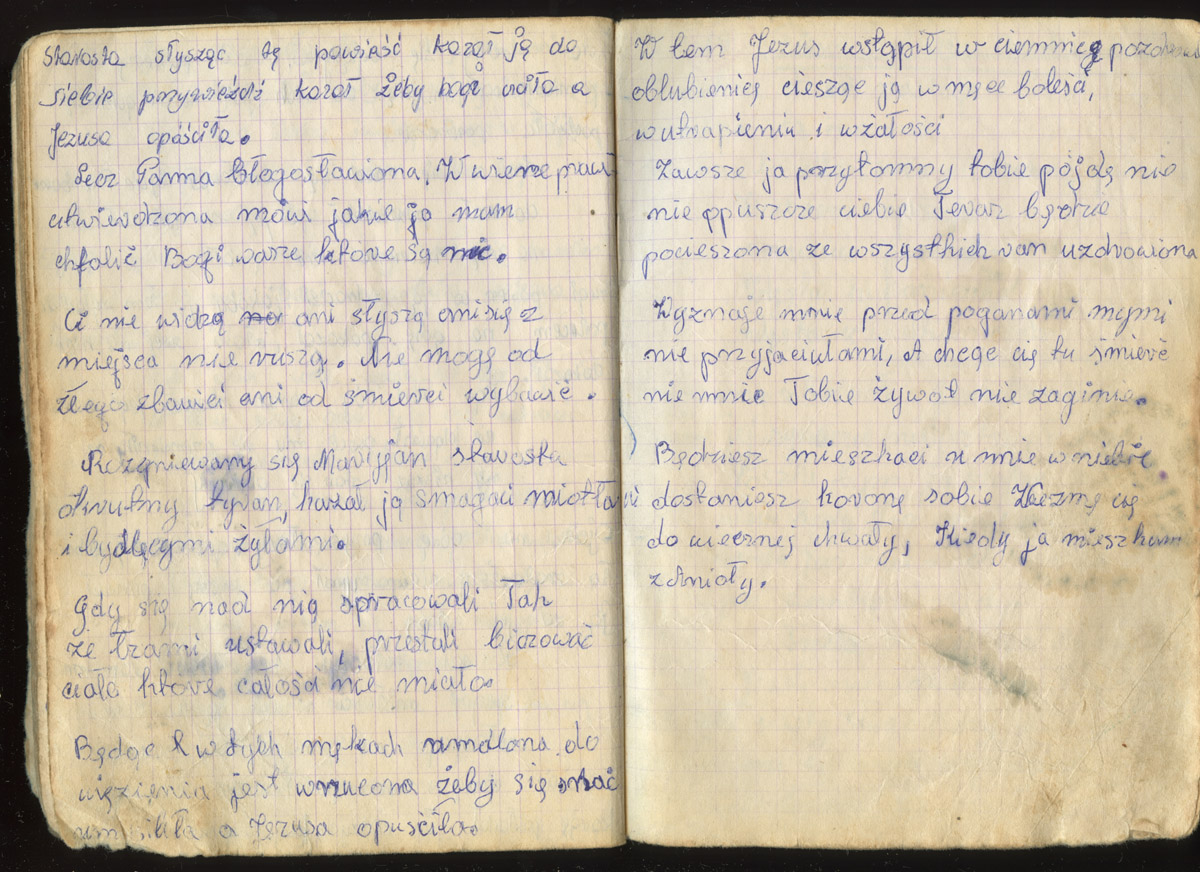 Starosta słysząc tę powieść kazał ją do
siebie przywieźdź kazał żeby bogi  a
Jezusa opóściła.
Lecz Panna błogosławiona. W wierze prawi
utwierdzona mówi jakże ja mam
chfalić Bogi wasze które są nic.
Ci nie widzą ani słyszą ani się z
miejsca nie ruszą. Nie mogą od
złego zbawici ani od śmierci wybawić.
Rozgniewany się Maryjan starosta
okrutny tyran, kazał ją smagaci miotłami
i bydlęcymi żyłami.
Gdy się nad nią spracowali Tak
że łzami ustawali, przestali biczować
ciało które całości nie miało.
Będąc w tych mękach umdlona do
więzienia jest wrzucona żeby się
umyśliła a Jezusa opuściła.
W tem Jezus wstąpił w ciemnicę
oblubienicę ciesząc ją w męce boleśa,
w utrapieniu i w żałości
Zawsze ja przytomny tobie pójdę nie
nie opuszcze ciebie Teraz będzie
pocieszona ze wszystkich ran uzdrowiona
Wyznaję mnie przed poganami mymi
nie przyjaciułami, A chcąc cię tu śmierć
nie mnie Tobie żywot nie zaginie.
Będziesz mieszkaci u mnie w niebie
dostaniesz koronę sobie Wezmę cię
do wiecznej chwały, Kiedy ja mieszkam
z Anioły.